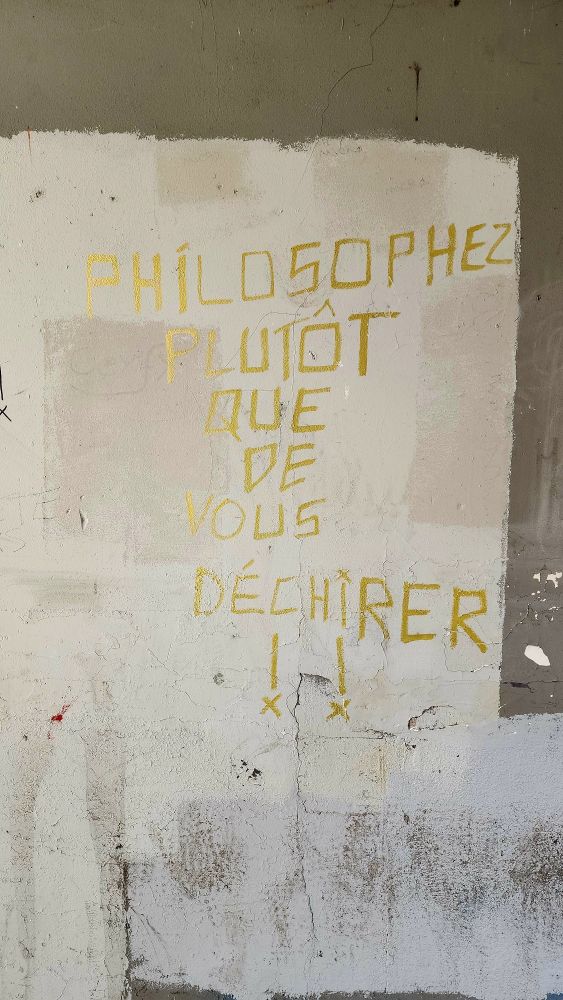 PHILOSOPHEZ
PLUTÔT
QUE
DE
VOUS
DÉCHIRER
!!